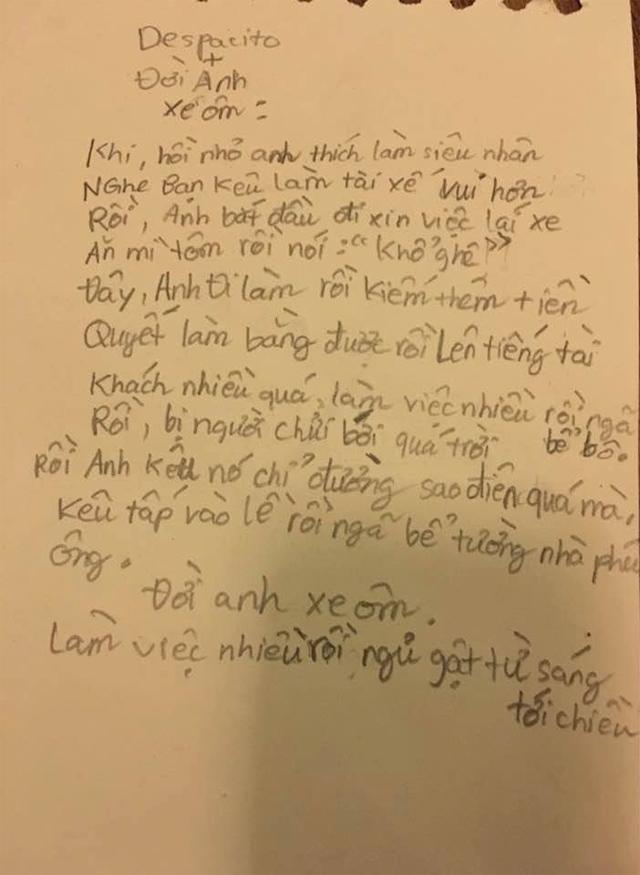 Despacito
+
Đời Anh
xe ôm:
Khi, hồi nhỏ anh thích làm siêu nhân
NGhe Bạn Kêu làm tài xế vui hơn
Rồi, Anh bắt đầu đi xin việc lái xe
Ăn mì tôm rồi nói: "Khổ ghê"
Đây, Anh Đi làm rồi Kiếm thêm tiền
Quyết làm bằng được rồi Lên tiếng tài
Khách nhiều quá, làm việc nhiều rồi ngã
bể bô.
Rồi, bị người chửi bới quá trời
Rồi Anh Kêu nó chỉ đường sao điên quá mà,
Kêu tấp vào lề rồi ngã bể tường nhà phú
ông.
Đời anh xe ôm.
Làm việc nhiều rồi ngủ gật từ sáng
tới chiều